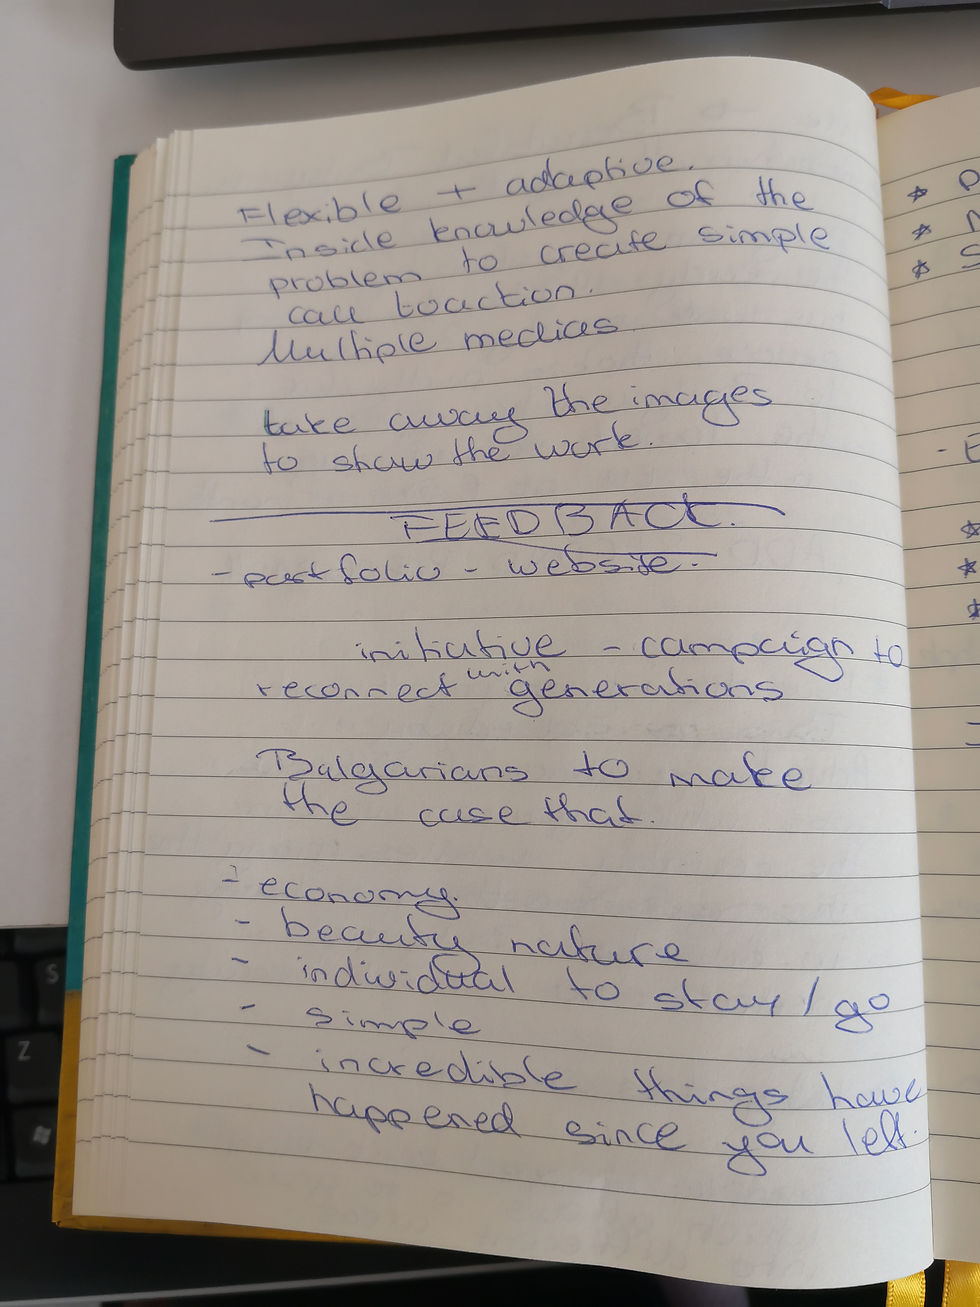 Flexible + adaptive.
Inside knowledge of the
problem to create simple
call toaction.
Multiple medias
take away the images
to show the work.
FEEDBACK.
- portfolio - website.
initiative - campaign to
reconnect with generations
Bulgarians to make
the case that.
- economy.
- beauty nature
- individual to stay / go
- simple
- incredible things have
happened since you left.
S
Z